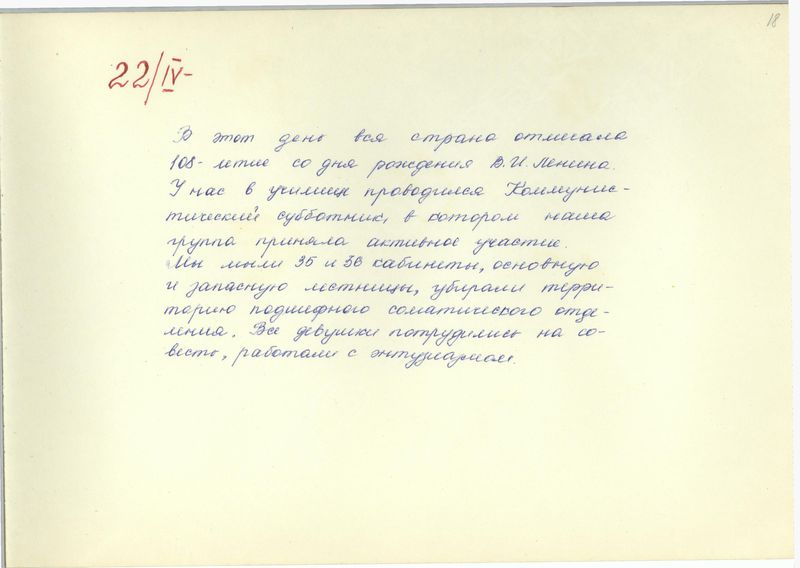 18
22/IV-
В этот день вся страна отмечала
108-летие со дня рождения В.И. Ленина.
У нас в училище проводился Коммунис-
тический субботник, в котором наша
группа приняла активное участие.
Мы мыли 35 и 36 кабинеты, основную
и запасную лестницы, убирали терри-
торию подшефного соматического отде-
ления. Все девушки потрудились на со-
весть, работали с энтузиазмом.